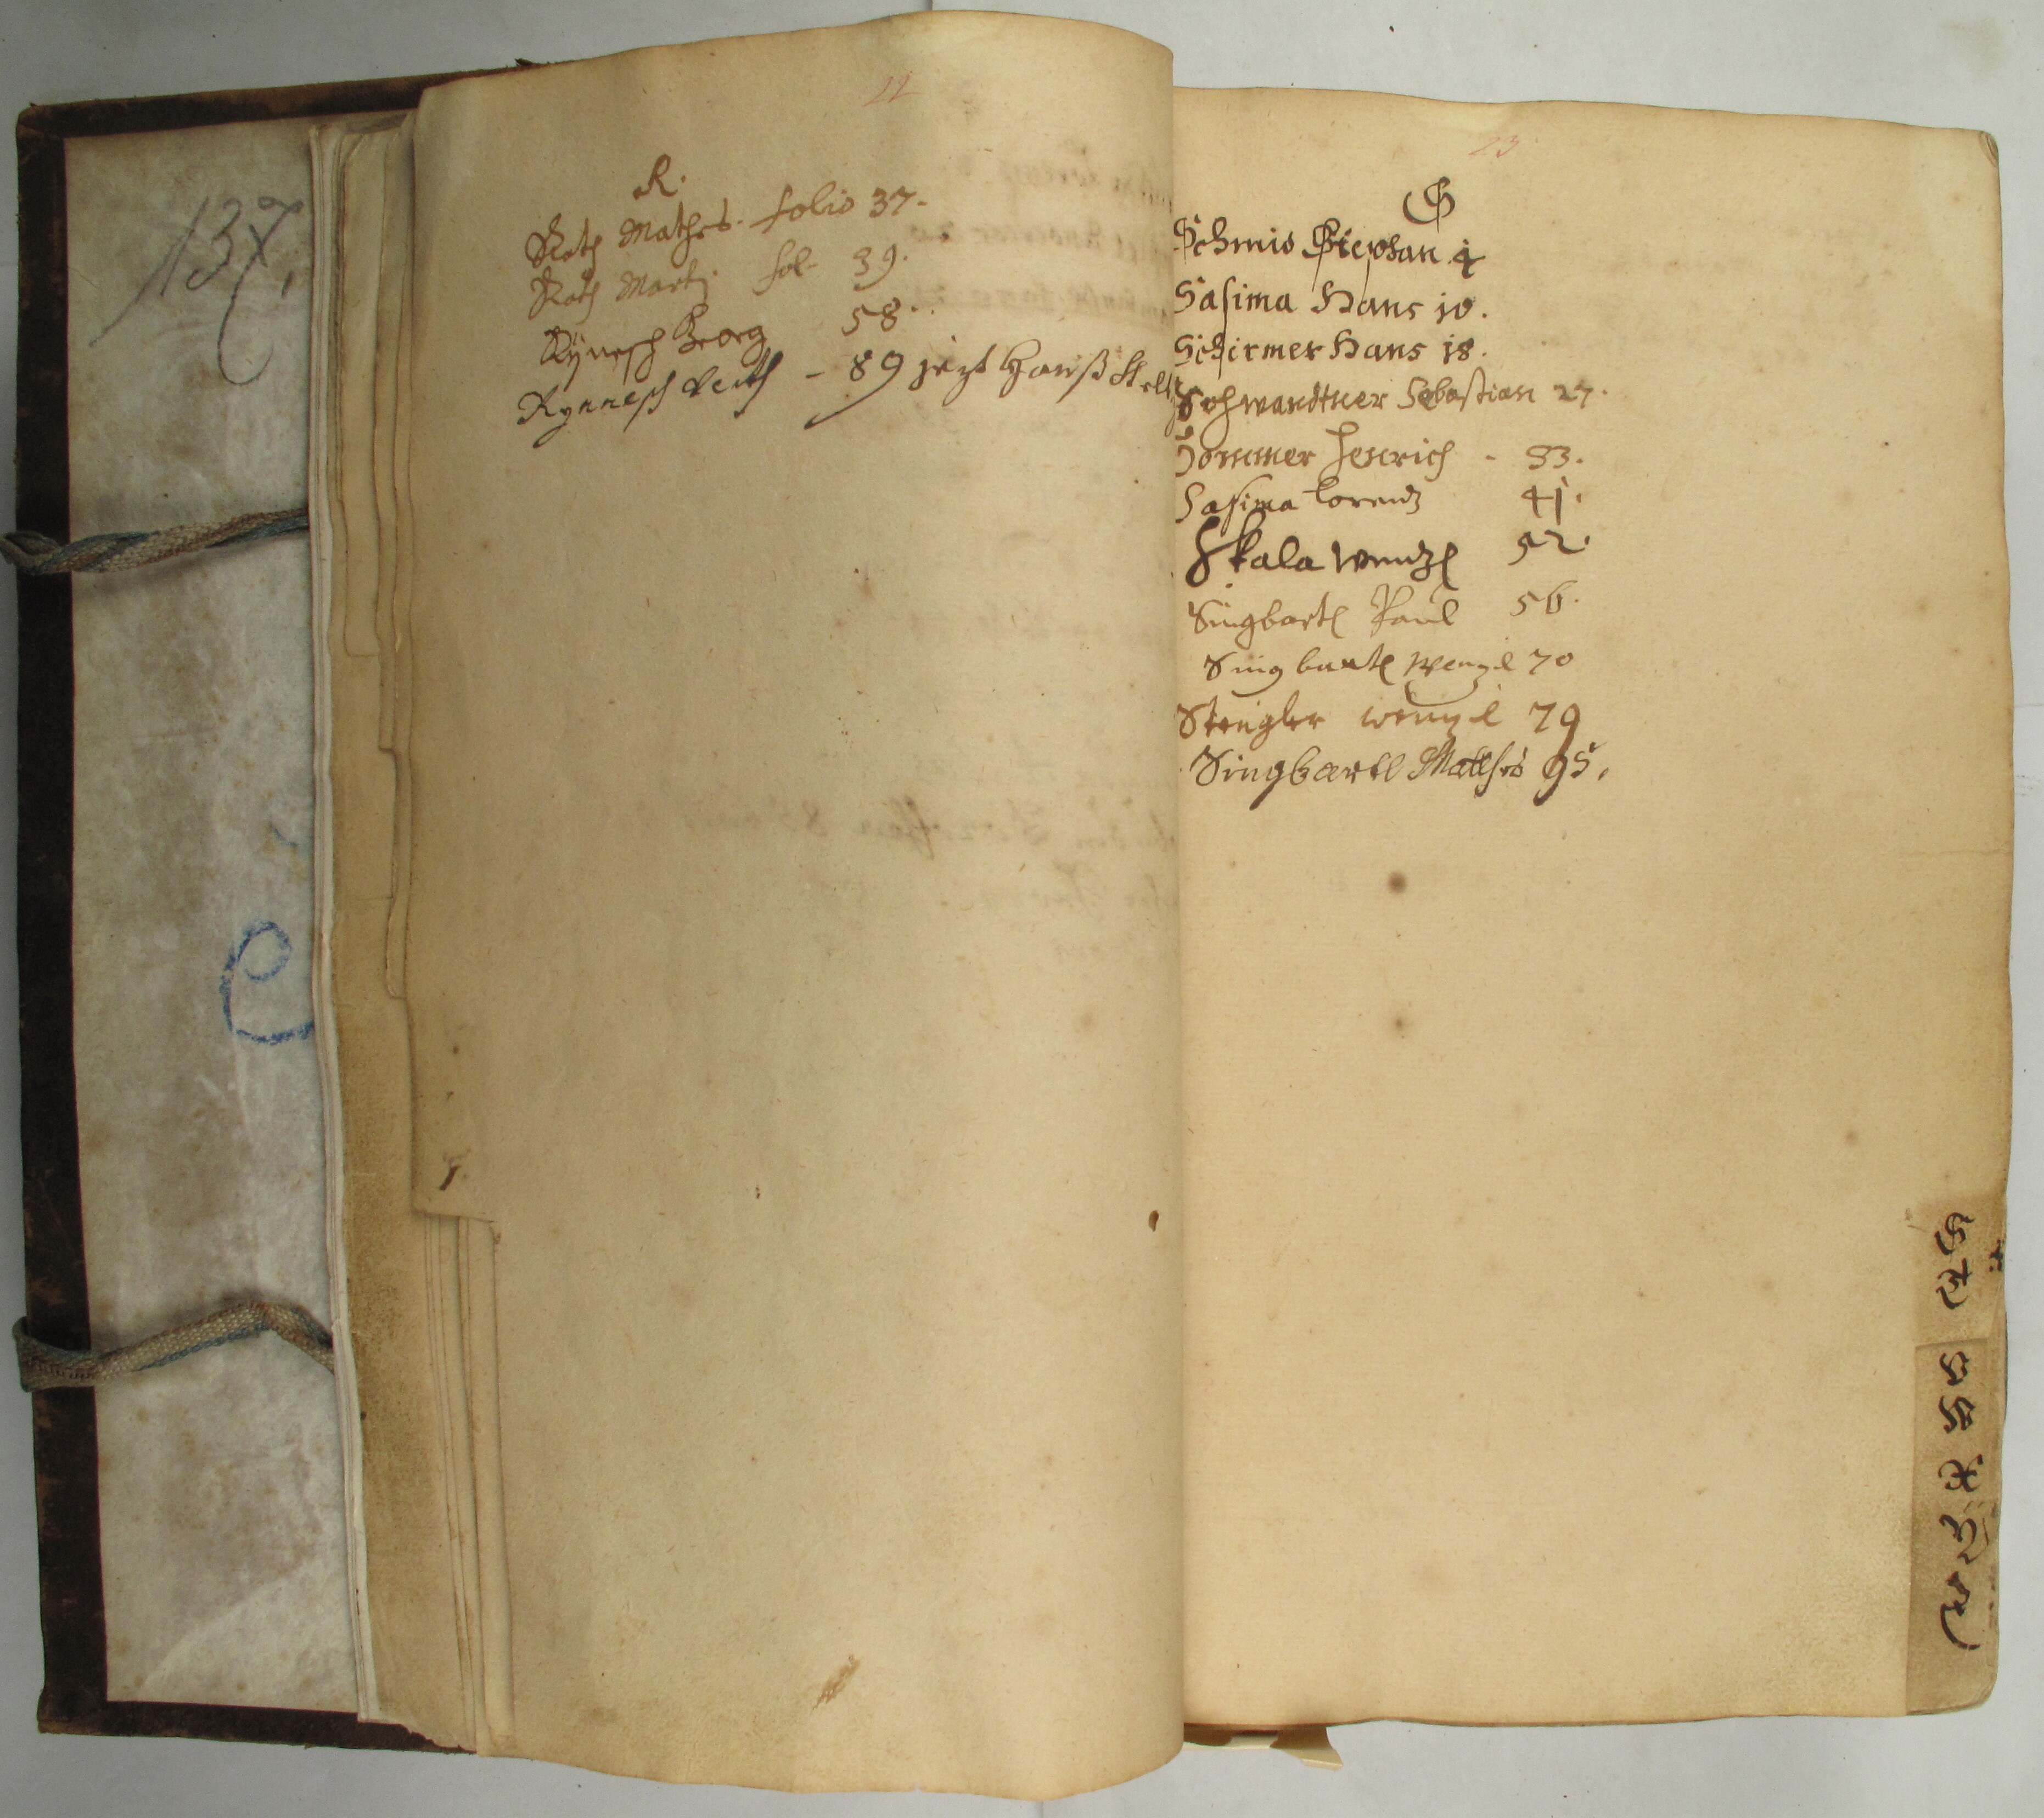 137,
22
R.
Roth Mathes. folio 37.
Roth Martj. fol. 39.
Rÿnesch Georg 58.
Rynnesch Veith - 89 jezt Hanß
23
S
Schmid Stephan 4
Sasima Hans 10.
Schirmer Hans 18.
Schwandtner Sebastian 27.
Sommer Henrich - 33.
Sasima Lorentz 41.
Skala Wentzl 52.
Singbartl Paul 56.
Singbartl Wenzel 70
Stengler Wenzel 79
Singbartl Mathes 95.
S
T
V
W
X
Y
Z